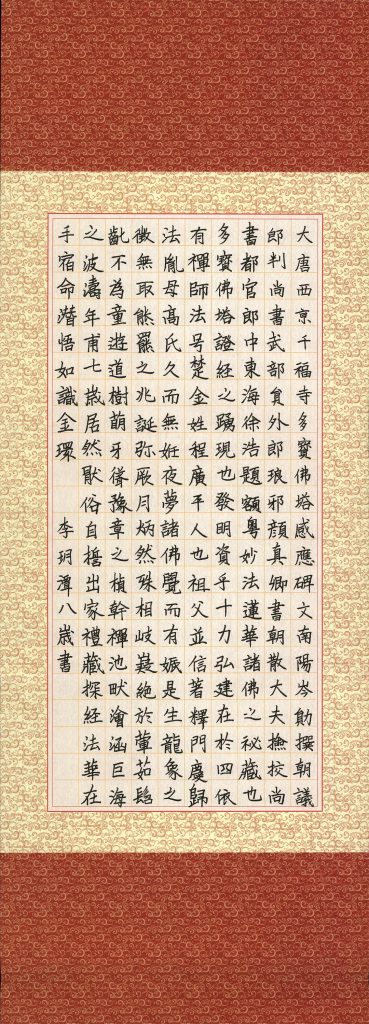 大唐西京千福寺多寶佛塔感應碑文南陽岑勛撰朝議
郎判尚書武部員外郎琅邪顏真卿書朝散大夫撿挍尚
書都官郎中東海徐浩題額粵妙法蓮華諸佛之秘藏也
多寶佛塔證經之踴現也發明資乎十力弘建在於四依
有禪師法号楚金姓程廣平人也祖父並信著釋門慶歸
法胤母高氏久而無妊夜夢諸佛覺而有娠是生龍象之
徵無取熊羆之兆誕弥厥月炳然殊相岐嶷絕於葷茹髫
齔不為童遊道樹萌牙聳豫章之楨幹禪池畎澮涵巨海
之波濤年甫七歲居然猒俗自誓出家禮藏探經法華在
手宿命潛悟如識金環 李玥潭八歲書